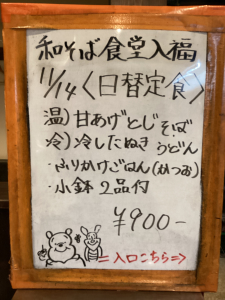 和そば食堂入福
11/14〈日替定食〉
温）甘あげとじそば
冷）冷したぬきうどん
・ふりかけごはん(かつお)
・小鉢2品付
¥900-
=入口こちら⇒